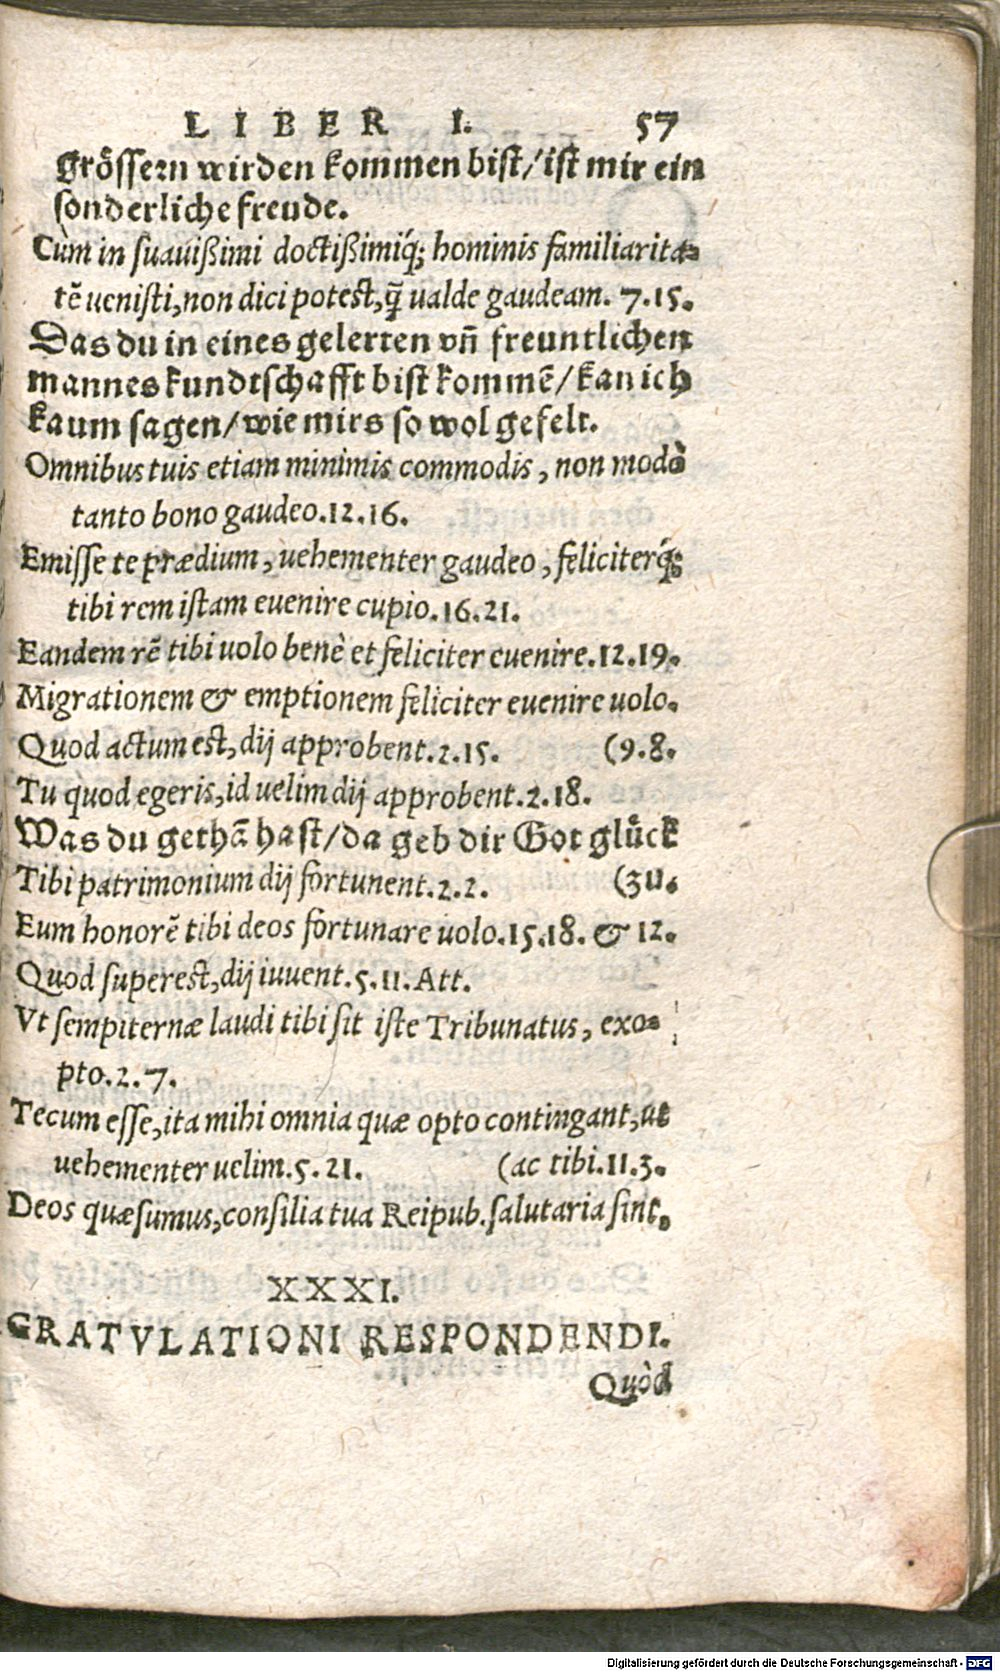 LIBER I. 57
grössern wirden kommen bist/ ist mir ein
sonderliche freude.
Cùm in suauißimi doctißimiq́; hominis familiarita-
tē uenisti, non dici potest, q̃ ualde gaudeam. 7.15.
Das du in eines gelerten vñ freuntlichen
mannes kundtschafft bist kommē/ kan ich
kaum sagen/ wie mirs so wol gefelt.
Omnibus tuis etiam minimis commodis, non modò
tanto bono gaudeo. 12.16.
Emisse te prædium, uehementer gaudeo, feliciterq́;
tibi rem istam euenire cupio. 16.21.
Eandem rē tibi uolo benè et feliciter euenire. 12.19.
Migrationem & emptionem feliciter euenire uolo.
Quod actum est, dij approbent. 2.15. (9.8.
Tu quod egeris, id uelim dij approbent. 2.18.
Was du gethā hast/ da geb dir Got glück
Tibi patrimonium dij fortunent. 2.2. (zu.
Eum honorē tibi deos fortunare uolo. 15.18. & 12.
Quod superest, dij iuuent. 5.11. Att.
Vt sempiternæ laudi tibi sit iste Tribunatus, exo-
pto. 2.7.
Tecum esse, ita mihi omnia quæ opto contingant, ut
uehementer uelim. 5.21. (ac tibi. 11.3.
Deos quæsumus, consilia tua Reipub. salutaria sint,
XXXI.
GRATVLATIONI RESPONDENDI.
Quòd
Digitalisierung gefördert durch die Deutsche Forschungsgemeinschaft - DFG